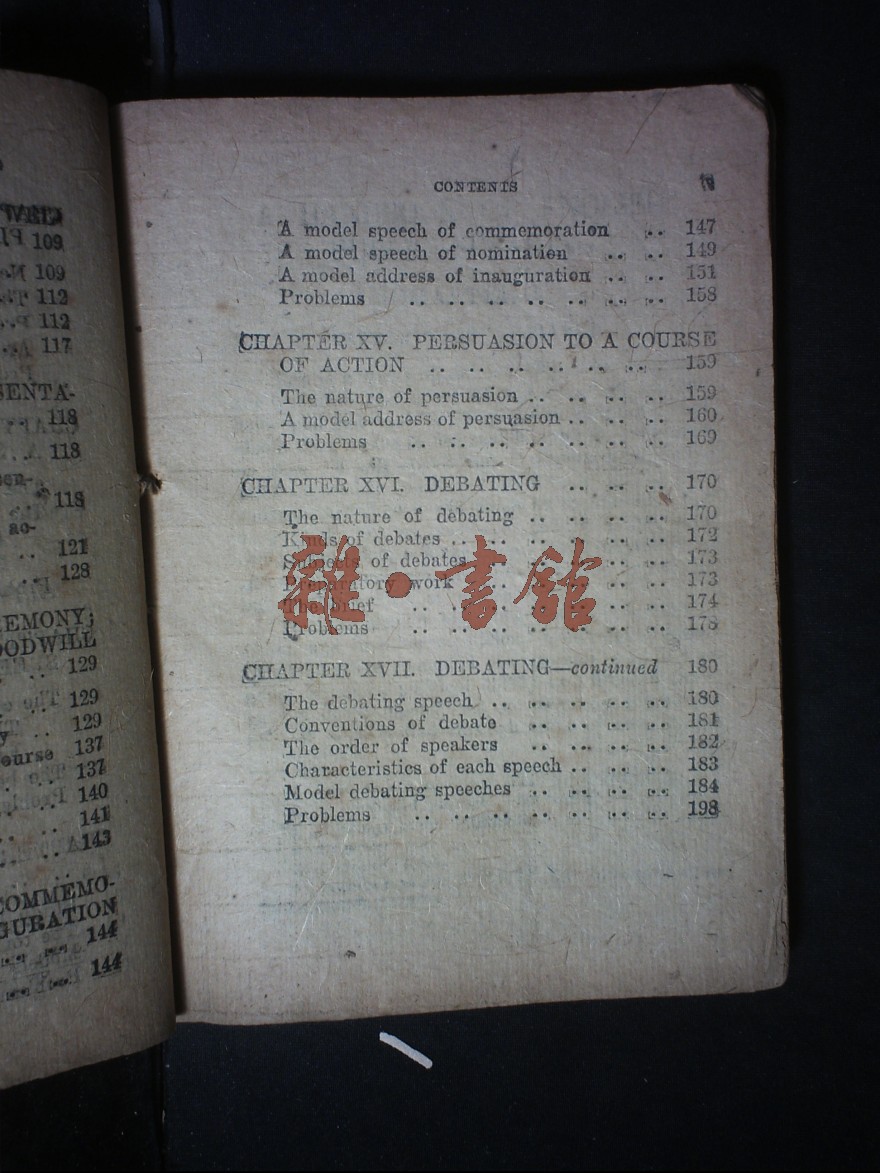 109
109
112
112
117
SENTA-
118
118
118
121
128
REMONY;
OODWILL
129
129
129
ourse 137
137
140
141
143
COMMEMO-
GURATION
144
144
CONTENTS
A model speech of commemoration .. 147
A model speech of nomination .. .. 149
A model address of inauguration .. .. 151
Problems .. .. .. .. .. .. .. 158
CHAPTER XV. PERSUASION TO A COURSE
OF ACTION .. .. .. .. .. .. 159
The nature of persuasion .. .. .. .. 159
A model address of persuasion .. .. .. 160
Problems .. .. .. .. .. .. .. 169
CHAPTER XVI. DEBATING .. .. .. 170
The nature of debating .. .. .. .. 170
Kinds of debates .. .. .. .. .. .. 172
Subjects of debates .. .. .. .. .. 173
Preparatory work .. .. .. .. .. 173
The brief .. .. .. .. .. .. .. 174
Problems .. .. .. .. .. .. .. 178
雜·書館
CHAPTER XVII. DEBATING—continued 180
The debating speech .. .. .. .. .. 180
Conventions of debate .. .. .. .. 181
The order of speakers .. .. .. .. 182
Characteristics of each speech .. .. .. 183
Model debating speeches .. .. .. .. 184
Problems .. .. .. .. .. .. .. 198